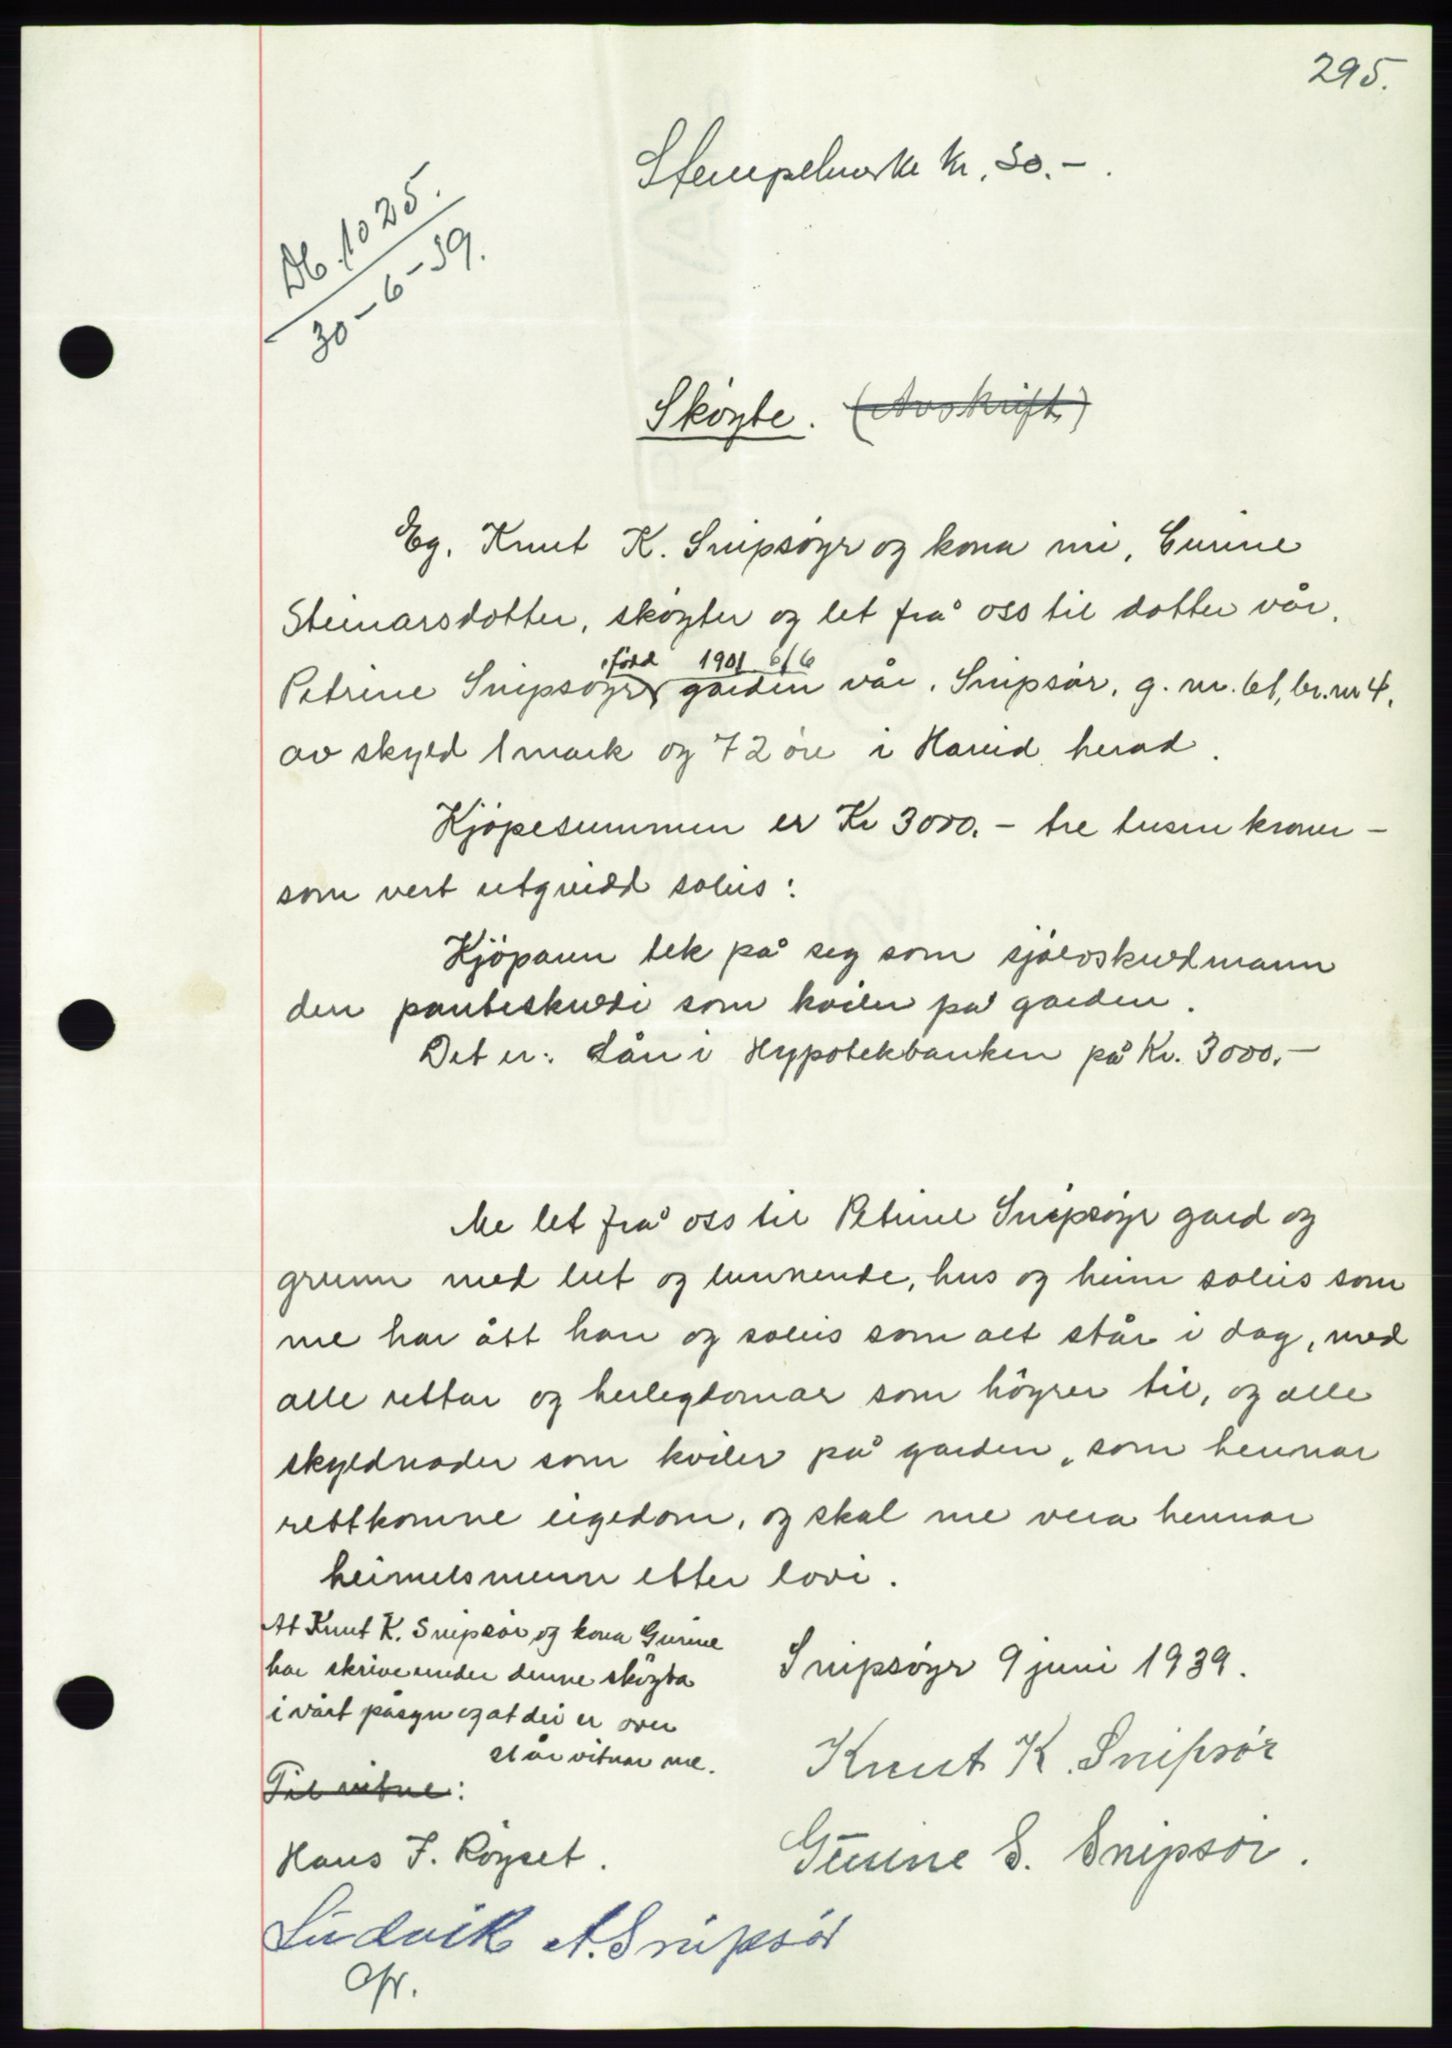 295.
Stempelmerke kr. 30.-
Db. 1025.
30-6-39.
Sköyte. (Avskrift)
Eg, Knut K. Snipsöyr og kona mi, Gurine
Steinarsdotter, sköyter og let frå oss til dotter vår,
, född 1901 6/6
Petrine Snipsöyr garden vår, Snipsør, g. nr. 61, br. nr 4,
av skyld 1 mark og 72 øre i Hareid herad.
Kjöpesummen er Kr 3000.- tre tusen kroner -
som vert utgreidd soleis:
Kjöparen tek på seg som sjølvskuldmann
den panteskuldi som kviler på garden.
Det er: Lån i Hypotekbanken på Kr. 3000.-
Me let frå oss til Petrine Snipsöyr gard og
grunn med lut og lunnende, hus og heim soleis som
me har ått han og soleis som alt står i dag, med
alle rettar og herlegdomar som höyrer til, og alle
skyldnader som kviler på garden, som hennar
rettkomne eigedom, og skal me vera hennar
heimelsmenn etter lovi.
At Knut K. Snipsør og kona Gurine
har skrive under denne sköyta
i vårt påsyn og at dei er over
21 år vitnar me.
Til vitne:
Hans J. Röyset.
Ludvik A. Snipsør
Snipsöyr 9 juni 1939.
Knut K. Snipsør
Gurine S. Snipsør.